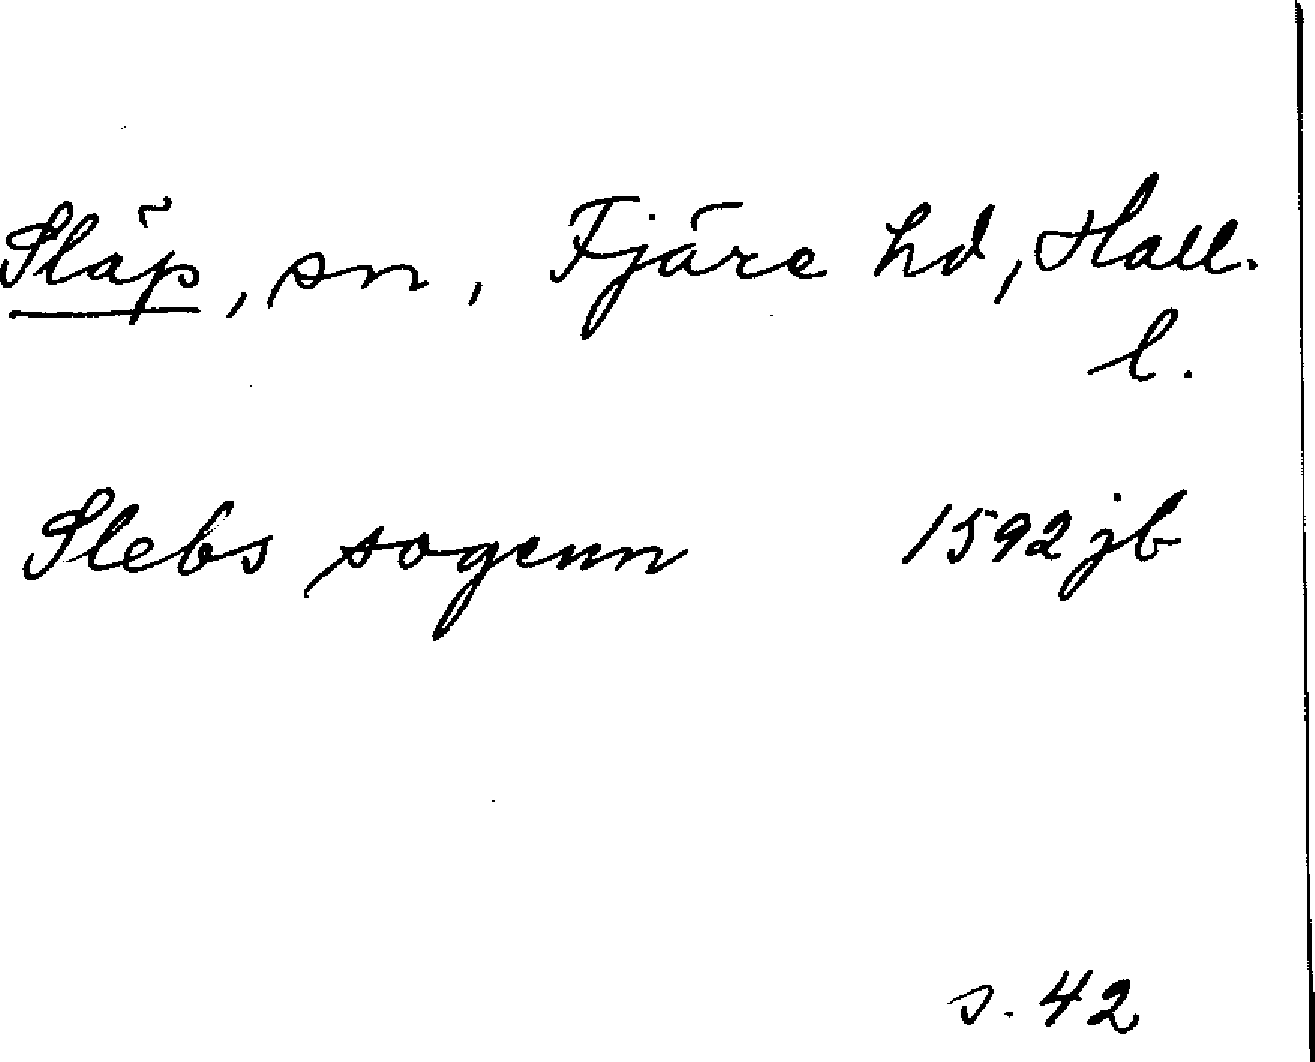 Släp, sn, Fjäre hd, Hall.
l.
Slebs sogenn 1592 jb
s. 42